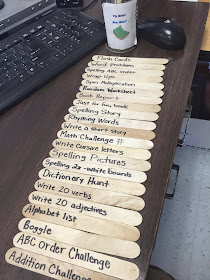 Flash Cards
Word Problems
Spelling ABC order
Wrap-Ups
Spin Multiplication
Random Worksheet
Book Report
Just for fun book
Spelling Story
Rhyming Words
Write a short story
Math Challenge #
Write Cursive letters
Spelling Pictures
Dictionary Hunt
Spelling 2x -white boards
Write 20 verbs
Write 20 adjectives
Alphabet list
Boggle
ABC Order Challenge
Addition Challenge